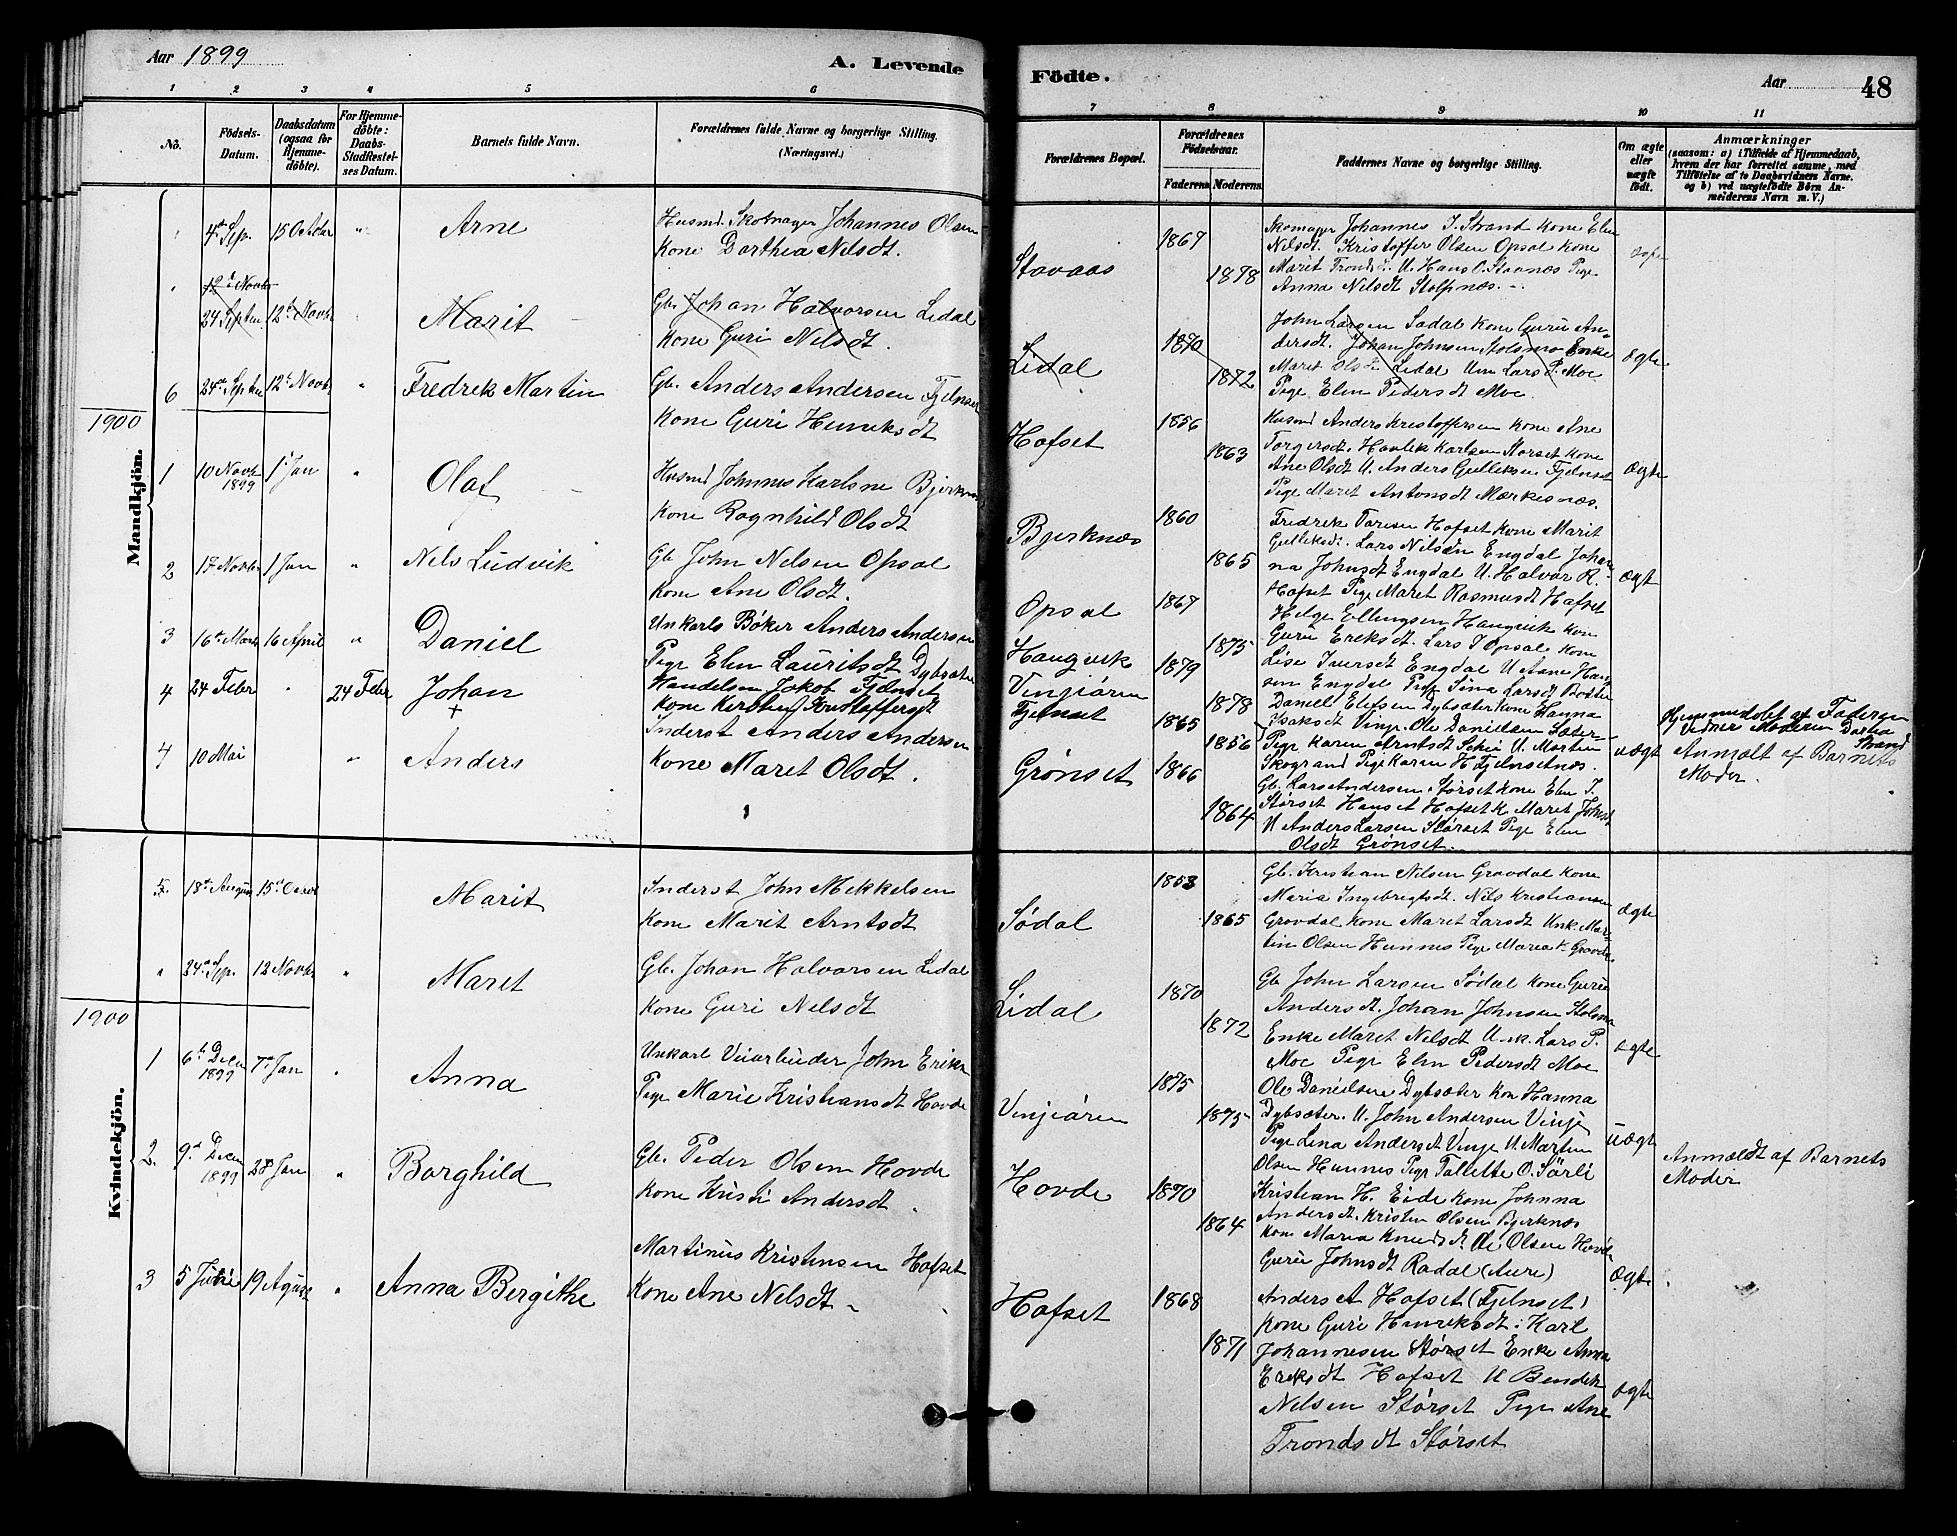 Aar 1899
A. Levende
Födte.
Aar
48
1
2
3
4
5
6
7
8
9
10
11
No.
Födsels-
Datum.
Daabsdatum
(ogsaa for
Hjemme-
döbte).
For Hjemme-
döbte:
Daabs-
Stadfestel-
ses Datum.
Barnets fulde Navn.
Forældrenes fulde Navne og borgerlige Stilling.
(Næringsvei.)
Forældrenes Bopæl.
Forældrenes
Födselsaar.
Faderens
Moderens
Faddernes Navne og borgerlige Stilling.
Om ægte
eller
uægte
födt.
Anmærkninger
(saasom: a) i Tilfælde af Hjemmedaab,
hvem der har forrettet samme, med
Tilföielse af to Daabsvidners Navne.
og b) ved uægtefödte Börn An-
melderens Navn m. V.)
Mandkjön.
4de Sep.
15 Octbr
"
Arne
Husmd. Skomager Johannes Olsen
Kone Dorthea Nilsdt.
Stavaas
1867
1878
Skomager Johannes J. Strand Kone Elen
Nilsdt. Kristoffer Olsen Opsal Kone
Marit Tronds d. U. Hans O. Stavnes Pige
Anna Nilsdt Stolpnæs.
12te Novbr
24 Septem.
12te Novbr
Marit
Gb. Johan Halvorsen Lidal
Kone Guri Nilsdt.
Lidal
1870
1872
John Larsen Sødal Kone Guru An-
dersdt. Johan Johnsen Stolsmo Enke
Maret Olsdt Lidal Um Lars P. Moe
Pige Elen Pedersdt Moe.
ægte
6
24de Septbr
12te Novbr
"
Fredrek Martin
Gb. Anders Andersen Fjelnset
Kone Guri Henriksdt
Hofset
1856
1863
Husmd Anders Kristoffersen Kone Ane
Torgersdt. Havlek Karlsen Størset Kone
Ane Olsdt U. Anders Gulleksen Fjelnset
Pige Maret Antonsdt Mærkesnæs.
Ægte
1900
1
10 Novbr
1899
1 Jan
"
Olaf
Husmd Johannes Karlsne Bjerknæs
Kone Ragnhild Olsdt
Bjerknæs
1860
1865
Fredrek Toresen Hofset Kone Marit
Gulleksdt. Lars Nilsen Engdal Johan
na Johnsdt Engdal U. Halvor R.
Hofset Pige Maret Rasmusdt Hofset
ægt
2
17 Novbr
1 Jan
"
Nels Ludvik
Gb John Nelsen Opsal
Kone Ane Olsdt.
Opsal
1867
1875
Helge Ellingsen Haugvik Kone
Guru Ereksdt. Lars J Opsal Kone
Lise Iversdt Engdal U Aane Han
sen Engdal Pige Sina Larsdt
3
16de Marts
16 April
"
Daniel
Unkarls Bøker Anders Andersen
Pige Elen Lauritsdt Dybsæter
Haugvik
Vinjeøren
1879
1878
Daniel Elefsen Dybsæter Kone Hanna
Isaksdt Vinje. Ole Danielsen Sæter
Pige Karen Arntsdt U. Morten
Skogrand Pige Karen H Fjelnsetnæs.
uægt
Anmældt af Barnets
Moder.
4
24 Febr
"
24 Febr
Johan
+
Handelsm Jakob Fjelnset
Kone Kirsten Kristoffersdt
Fjelnset
1865
1856
Hjemmedøbt af Faderen
Vidner Moderen Dortea
Strand
4
10 Mai
"
Anders
Inderst Anders Andersen
Kone Maret Olsdt.
Grønset
1866
1864
Gb. Lars Andersen Størset Kone Elen I.
Størset Hans et Hofset K. Maret Johnsdt
U Anders Larsen Størset Pige Elen
Olsdt Grønset.
Kvindekjön.
5
18de August
15de Octbr
Marit
Inderst John Mikkelsen
Kone Marit Arntsdt
Sødal
1853
1865
Gb. Kristian Nilsen Gravdal Kone
Maria Ingebregtsdt. Nils Kristiansen
Gravdal Kone Maret Larsdt Unk. Mar-
tin Olsen Hennes Pige Maria K. Gravdal
ægte
"
24de Sep.
12 Novbr
"
Maret
Gb. Johan Halvorsen Lidal
Kone Guri Nelsdt
Lidal
1870
1872
Gb John Larsen Sødal Kone Guru
Andersdt. Johan Johnsen Stolsmo
Enke Maret Nelsdt Unk. Lars P.
Moe Pige Elen Pedersdt Moe
ægte
1900
1
6te Decem
1899
7de Jan
"
Anna
Unkarl Veiarbeider John Eriks
Pige Marie Kristiansdt Hovde
Vinjeøren
1875
1875
Ole Danielsen Dybsæter Kon Hanna
Dybsæter. U. John Andersen Vinje
Pige Lina Andersdt Vinje U. Martin
Olsen Hennes Pige Tallette O. Sørli
uægte
Anmældt af Barnets
Moder
2.
9de Decem
1899
28 Jan
"
Borghild
Gb. Peder Olsen Hovde
Kone Kristi Andersdt
Hovde
1870
1864
Kristian H. Eide Kone Johnna
Andersdt. Kristen Olsen Bjerknæs
Kone Maria Knudsdt. Ole Olsen Hovde
Guru Johnsdt Rodal (Aure)
Ægte
3
5 Juli
19 August
"
Anna Bergithe
Martinus Kristensen Hofset
Kone Ane Nelsdt
Hofset
1868
1871
Anders A Hofset (Fjelnset)
Kone Guri Henreksdt. Karl
Johannesen Størset Enke Anna
Ereksdt Hofset U Bendek
Nelsen Størset Pige Ane
Trondsdt Størset
ægte